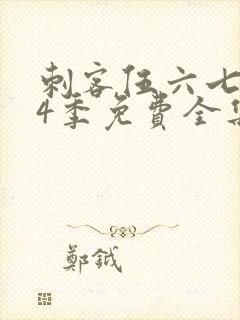 刺客伍六七
4季免費全集
鄭鉞